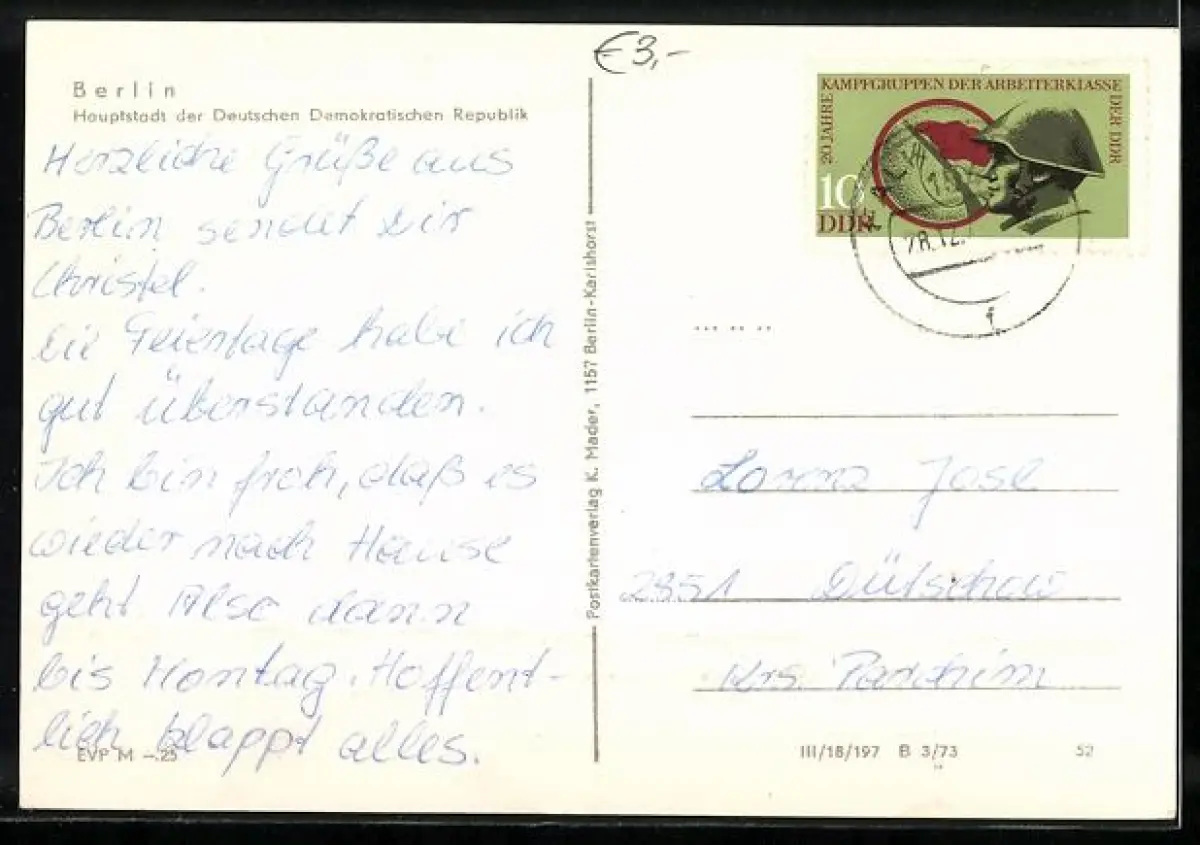 Berlin
Hauptstadt der Deutschen Demokratischen Republik
Herzliche Grüße aus
Berlin sendet Dir
Christel.
Die Feiertage habe ich
gut überstanden.
Ich bin froh, daß es
wieder nach Hause
geht Also dann
bis Montag. Hoffent-
lich klappt alles.
EVP M –.25
Postkartenverlag K. Mader, 1157 Berlin-Karlshorst
€3,-
20 JAHRE KAMPFGRUPPEN DER ARBEITERKLASSE DER DDR
10
DDR
28.12.
Lorenz
2851 Dütschow
Krs. Parchim
III/18/197 B 3/73 52